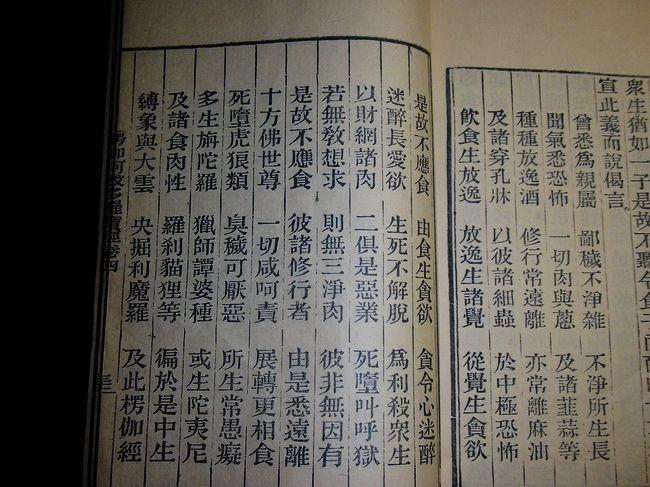 衆生猶如一子是故不聽令食子
宣此義而說偈言
曾悉爲親屬 鄙穢不淨雜 不淨所生長
聞氣悉恐怖 一切肉與蔥 及諸韮蒜等
種種放逸酒 修行常遠離 亦常離麻油
及諸穿孔牀 以彼諸細蟲 於中極恐怖
飲食生放逸 放逸生諸覺 從覺生貪欲
是故不應食 由食生貪欲 貪令心迷醉
迷醉長愛欲 生死不解脫 爲利殺衆生
以財網諸肉 二俱是惡業 死墮叫呼獄
若無教想求 則無三淨肉 彼非無因有
是故不應食 彼諸修行者 由是悉遠離
十方佛世尊 一切咸呵責 展轉更相食
死墮虎狼類 臭穢可厭惡 所生常愚癡
多生旃陀羅 獵師譚婆種 或生陀夷尼
及諸食肉性 羅刹貓狸等 徧於是中生
縛象與大雲 央掘利魔羅 及此楞伽經
楞伽阿跋多羅寶經卷四